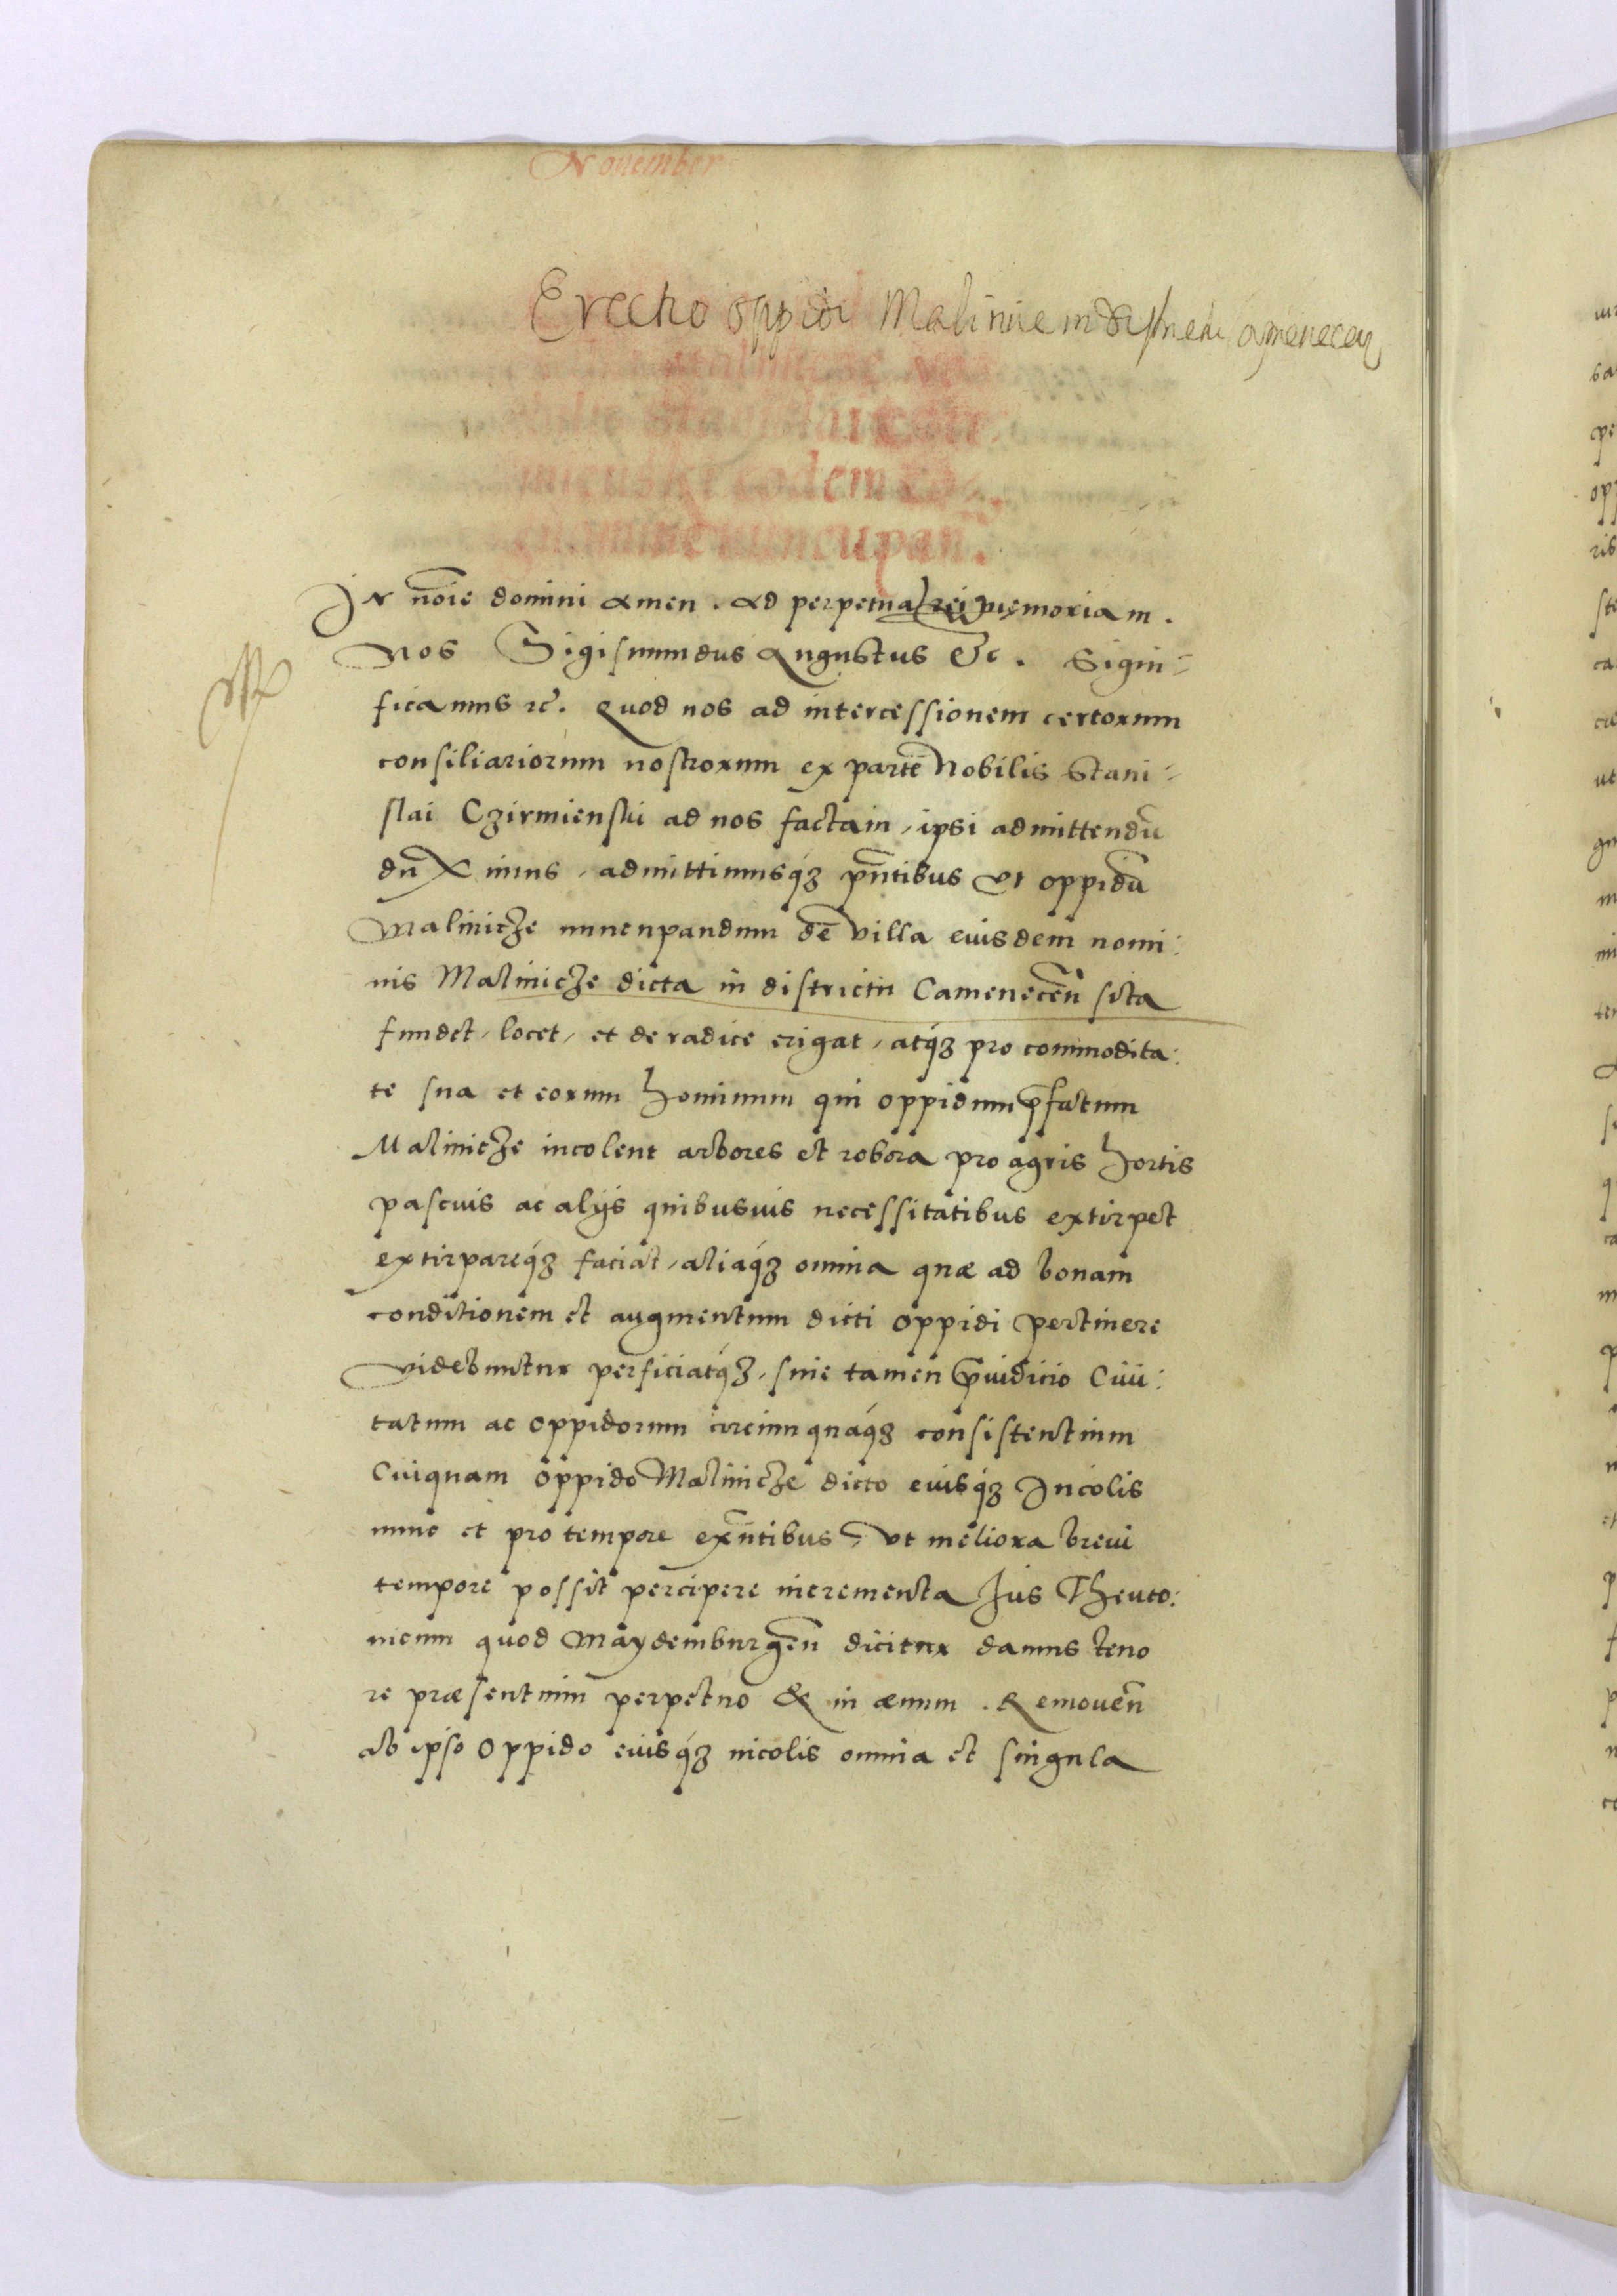 November
Erectio oppidi Malinicze in districtu Camenecen
Malinicze
Stanislai Czir
mienski eodem
nuncupan.
In noīe domini Amen. Ad perpetuā rei memoriam.
Nos Sigismundus Augustus &c. Signi:
ficamus &c. Quod nos ad intercessionem certorum
consiliariorum nostrorum ex parte Nobilis Stani:
slai Czirmienski ad nos factam, ipsi admittendū
duximus, admittimusq3 pn̄tibus Vt oppidū
Malinicze nuncupandum de Villa eiusdem nomi:
nis Malinicze dicta in districtu Camenecen̄ sita
fundet, locet, et de radice erigat, atq3 pro commodita:
te sua et eorum hominum qui oppidum p̄fatum
Malinicze incolent arbores et robora pro agris hortis
pascuis ac alijs quibusuis necessitatibus extirpet
extirpareq3 faciat, aliaq3 omnia quæ ad bonam
conditionem et augmentum dicti oppidi pertinere
videbuntur perficiatq3, sine tamen p̄iudicio Ciui:
tatum ac oppidorum circumquaq3 consistentium
Cuiquam oppido Malinicze dicto eiusq3 Incolis
nunc et pro tempore exn̄tibus, Vt meliora breui
tempore possit percipere incrementa Jus Theuto:
nicum quod Maydemburgen̄ dicitur damus teno
re præsentium perpetuo & in æuum. Remouen̄
ab ipso Oppido eiusq3 incolis omnia et singula